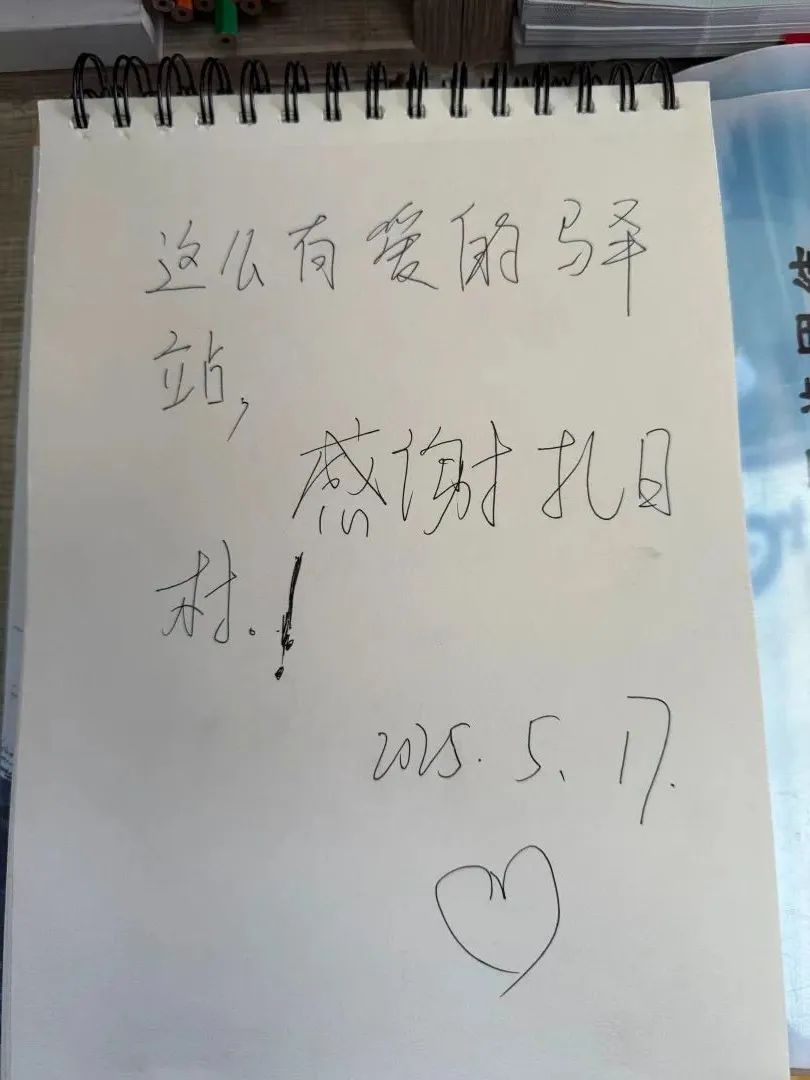 这么有爱的驿
站,
感谢扎日
村.!
2025.5.17.